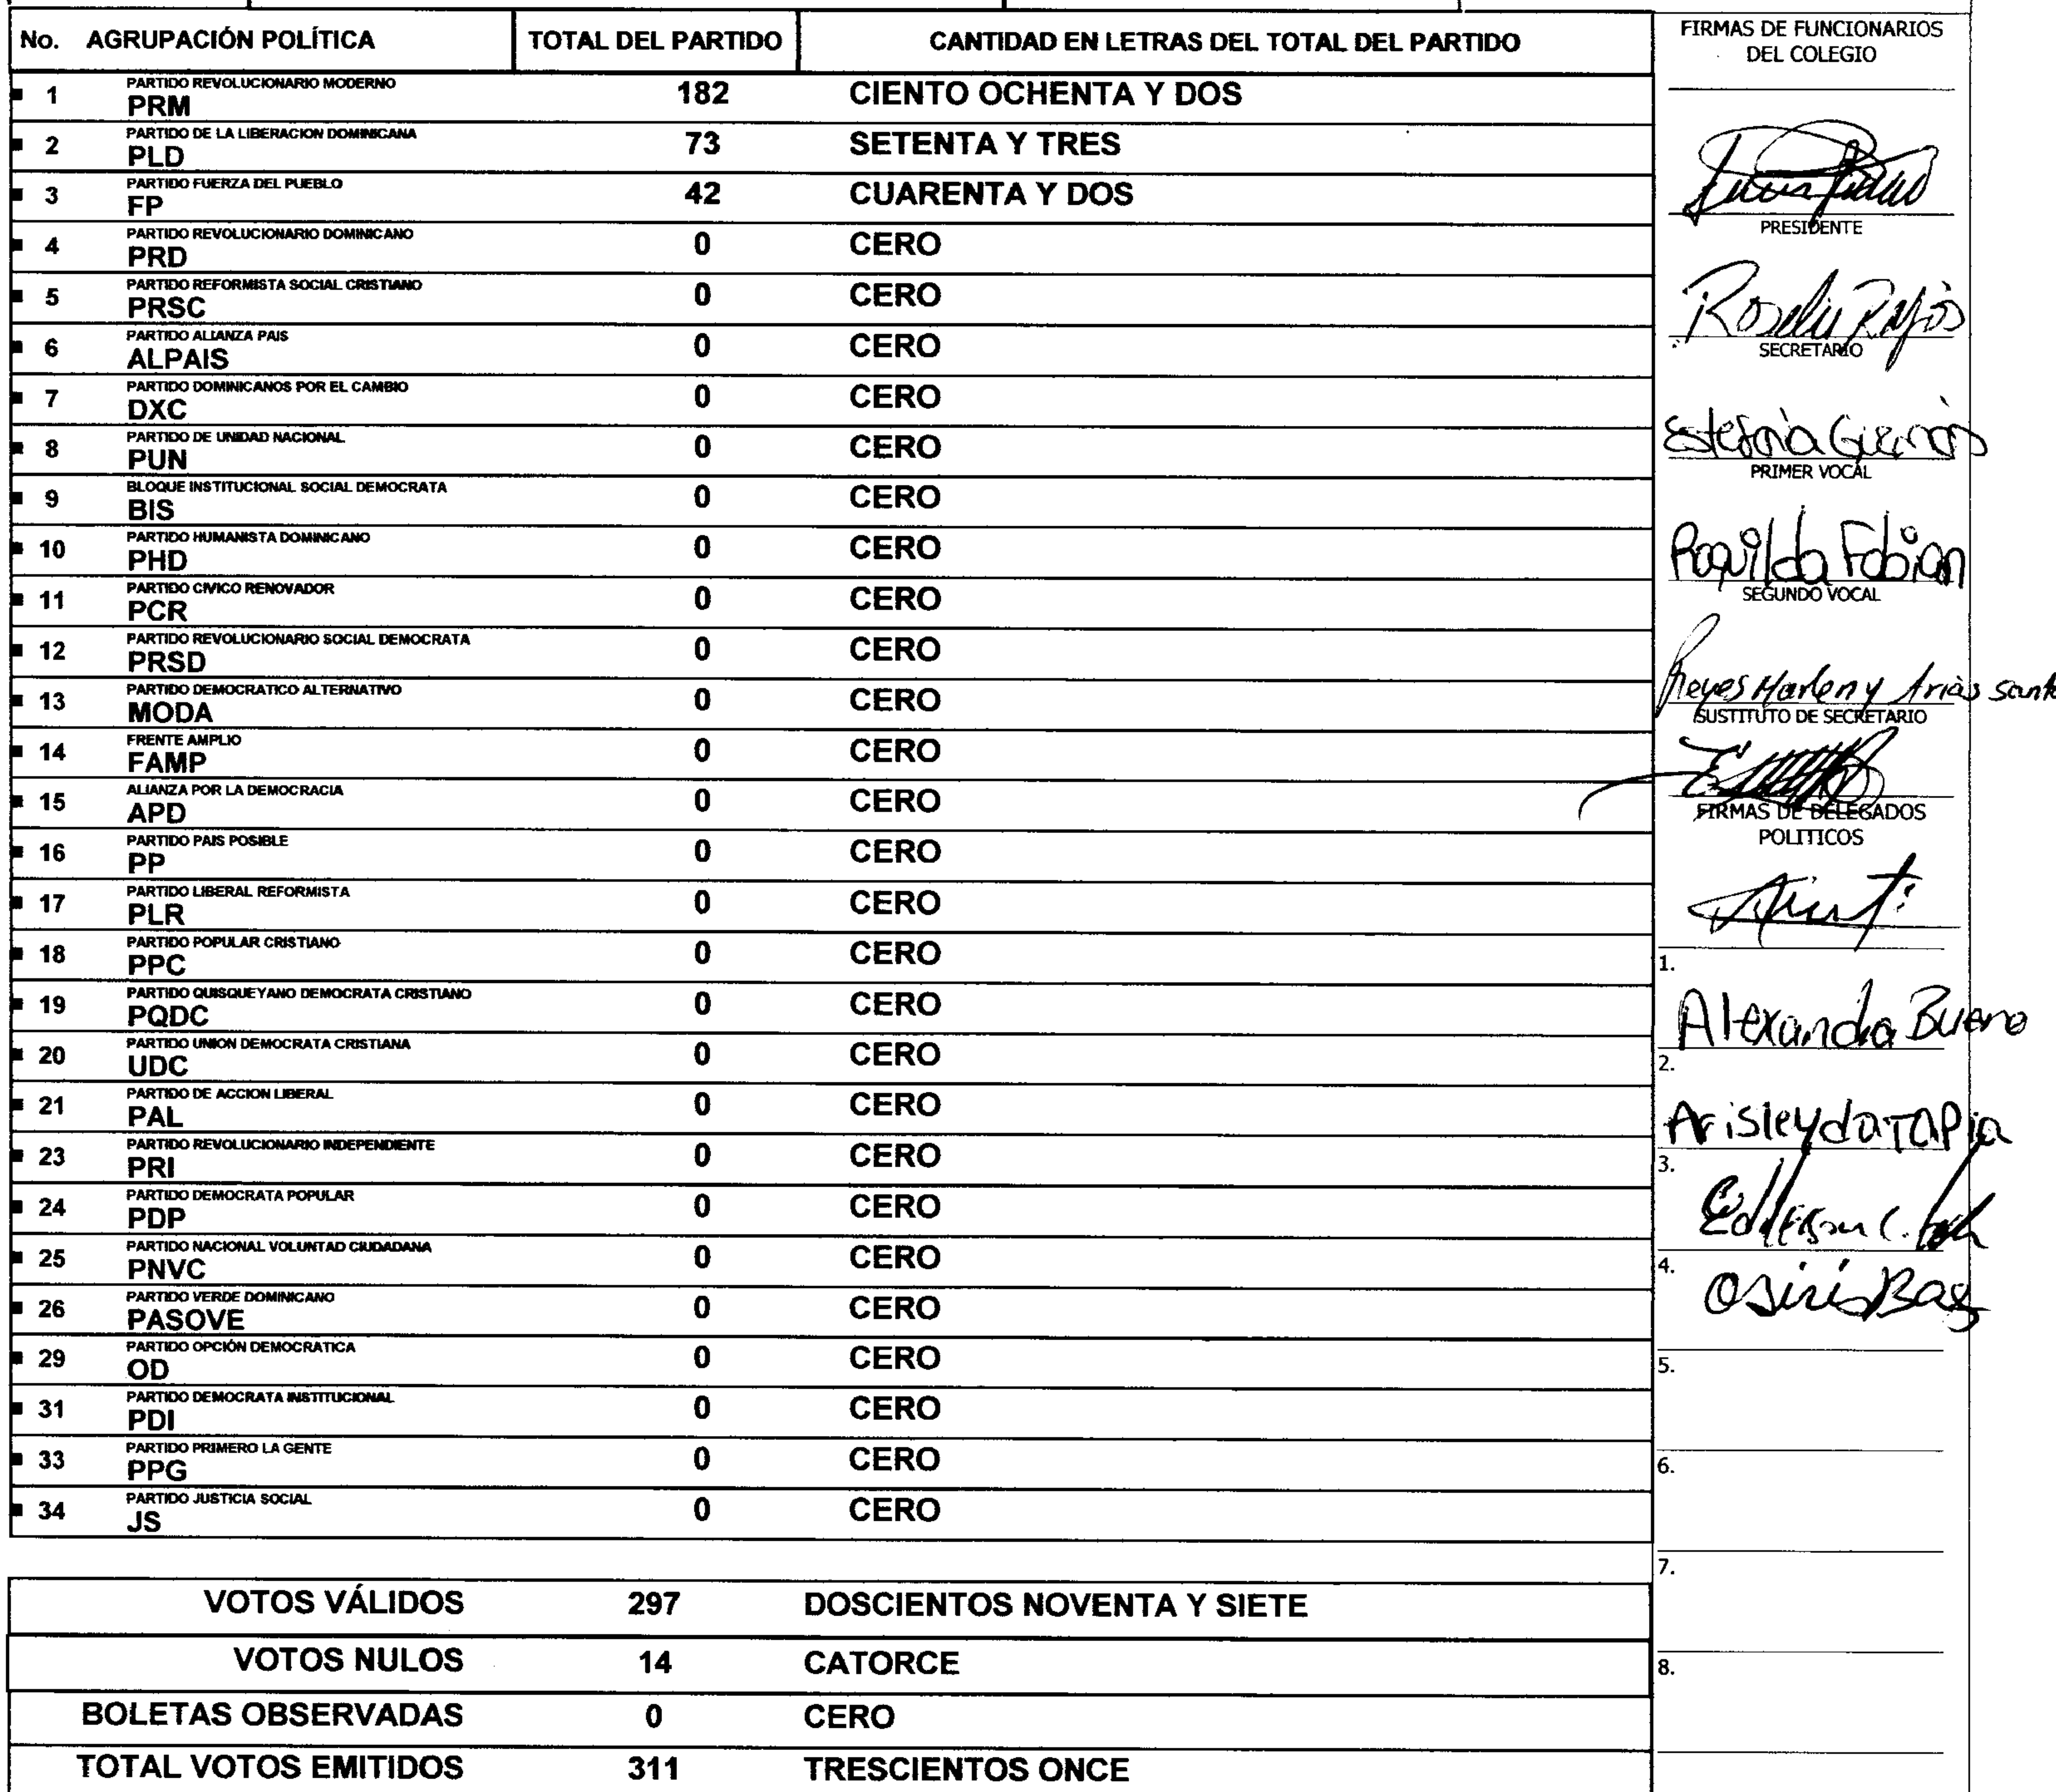 No. AGRUPACIÓN POLÍTICA TOTAL DEL PARTIDO CANTIDAD EN LETRAS DEL TOTAL DEL PARTIDO
PARTIDO REVOLUCIONARIO MODERNO
1 PRM 182 CIENTO OCHENTA Y DOS
PARTIDO DE LA LIBERACION DOMINICANA
2 PLD 73 SETENTA Y TRES
PARTIDO FUERZA DEL PUEBLO
3 FP 42 CUARENTA Y DOS
PARTIDO REVOLUCIONARIO DOMINICANO
4 PRD 0 CERO
PARTIDO REFORMISTA SOCIAL CRISTIANO
5 PRSC 0 CERO
PARTIDO ALIANZA PAIS
6 ALPAIS 0 CERO
PARTIDO DOMINICANOS POR EL CAMBIO
7 DXC 0 CERO
PARTIDO DE UNIDAD NACIONAL
8 PUN 0 CERO
BLOQUE INSTITUCIONAL SOCIAL DEMOCRATA
9 BIS 0 CERO
PARTIDO HUMANISTA DOMINICANO
10 PHD 0 CERO
PARTIDO CIVICO RENOVADOR
11 PCR 0 CERO
PARTIDO REVOLUCIONARIO SOCIAL DEMOCRATA
12 PRSD 0 CERO
PARTIDO DEMOCRATICO ALTERNATIVO
13 MODA 0 CERO
FRENTE AMPLIO
14 FAMP 0 CERO
ALIANZA POR LA DEMOCRACIA
15 APD 0 CERO
PARTIDO PAIS POSIBLE
16 PP 0 CERO
PARTIDO LIBERAL REFORMISTA
17 PLR 0 CERO
PARTIDO POPULAR CRISTIANO
18 PPC 0 CERO
PARTIDO QUISQUEYANO DEMOCRATA CRISTIANO
19 PQDC 0 CERO
PARTIDO UNION DEMOCRATA CRISTIANA
20 UDC 0 CERO
PARTIDO DE ACCION LIBERAL
21 PAL 0 CERO
PARTIDO REVOLUCIONARIO INDEPENDIENTE
23 PRI 0 CERO
PARTIDO DEMOCRATA POPULAR
24 PDP 0 CERO
PARTIDO NACIONAL VOLUNTAD CIUDADANA
25 PNVC 0 CERO
PARTIDO VERDE DOMINICANO
26 PASOVE 0 CERO
PARTIDO OPCIÓN DEMOCRATICA
29 OD 0 CERO
PARTIDO DEMOCRATA INSTITUCIONAL
31 PDI 0 CERO
PARTIDO PRIMERO LA GENTE
33 PPG 0 CERO
PARTIDO JUSTICIA SOCIAL
34 JS 0 CERO
VOTOS VÁLIDOS 297 DOSCIENTOS NOVENTA Y SIETE
VOTOS NULOS 14 CATORCE
BOLETAS OBSERVADAS 0 CERO
TOTAL VOTOS EMITIDOS 311 TRESCIENTOS ONCE
FIRMAS DE FUNCIONARIOS
DEL COLEGIO
PRESIDENTE
SECRETARIO
PRIMER VOCAL
Roquilda Fabian
SEGUNDO VOCAL
Reyes Marleny Arias
SUSTITUTO DE SECRETARIO
FIRMAS DE DELEGADOS
POLITICOS
1.
Alexandra Bueno
2.
Arisleyda TAPia
3.
4.
Osiris
5.
6.
7.
8.